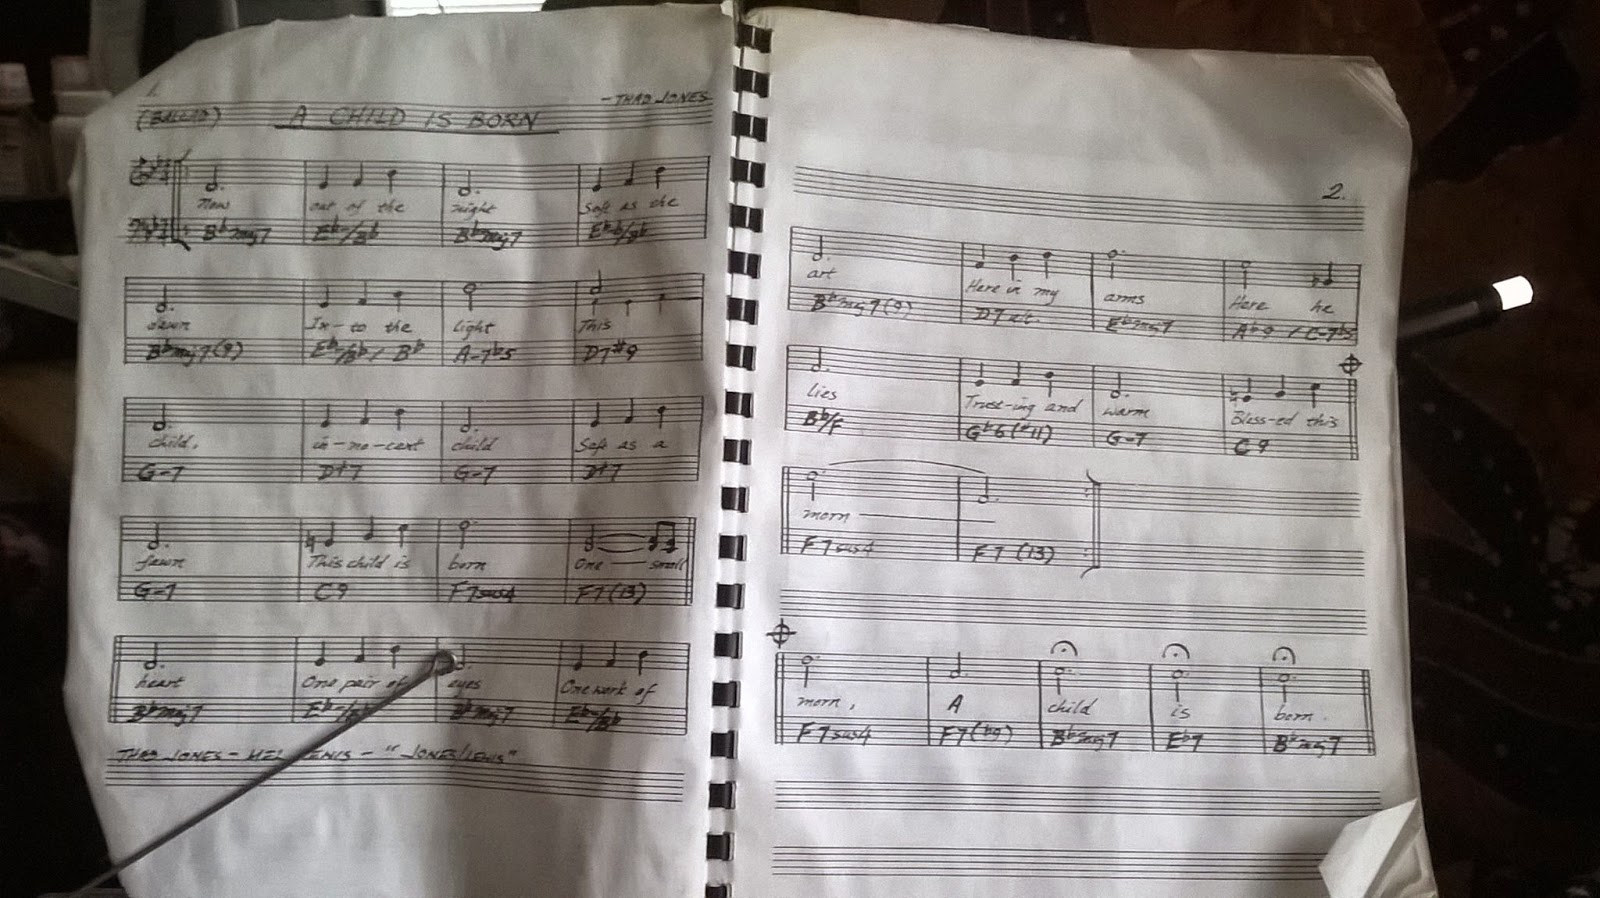 1.
(BALLAD) A CHILD IS BORN - THAD JONES
Now out of the night Soft as the
Bbmaj7 Eb-/Bb Bbmaj7 Eb-6/Bb
dawn In-to the light This
Bbmaj7(9) Eb-/Bb / Bb A-7b5 D7#9
child, in-no-cent child Soft as a
G-7 D+7 G-7 D+7
fawn This child is born One small
G-7 C9 F7sus4 F7(13)
heart One pair of eyes One work of
Bbmaj7 Eb-/Bb Bbmaj7 Eb-/Bb
THAD JONES - MEL LEWIS - "JONES/LEWIS"
2.
art Here in my arms Here he
Bbmaj7(9) D7alt. Ebmaj7 Ab9 / C-7b5
lies Trust-ing and warm Bless-ed this
Bb/F Gb6(#11) G-7 C9
morn
F7sus4 F7(13)
morn, A child is born.
F7sus4 F7(b9) Bbmaj7 Eb7 Bbmaj7